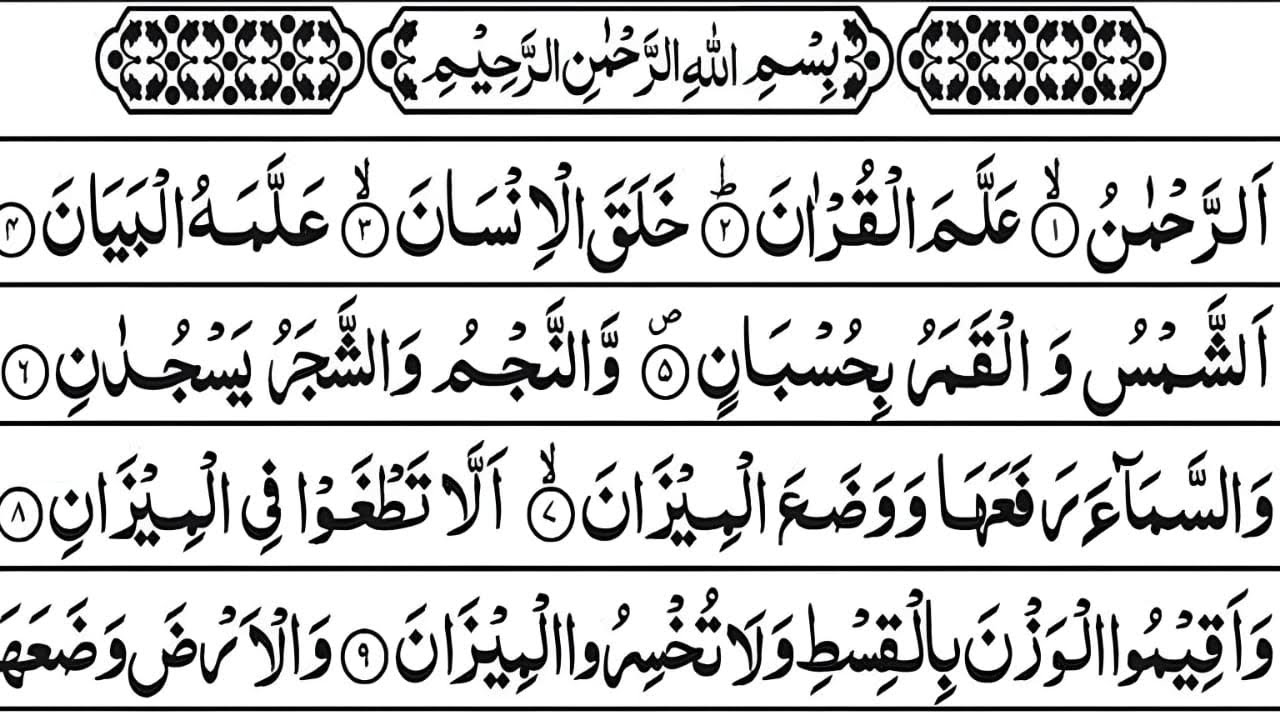 بِسْمِ اللّٰهِ الرَّحْمٰنِ الرَّحِيْمِ
اَلرَّحْمٰنُ ۙ﴿۱﴾ عَلَّمَ الْقُرْاٰنَ ؕ﴿۲﴾ خَلَقَ الْاِنْسَانَ ۙ﴿۳﴾ عَلَّمَهُ الْبَيَانَ ﴿۴﴾
اَلشَّمْسُ وَ الْقَمَرُ بِحُسْبَانٍ ۪﴿۵﴾ وَّالنَّجْمُ وَالشَّجَرُ يَسْجُدٰنِ ﴿۶﴾
وَالسَّمَآءَ رَفَعَهَا وَوَضَعَ الْمِيْزَانَ ۙ﴿۷﴾ اَلَّا تَطْغَوْا فِى الْمِيْزَانِ ﴿۸﴾
وَاَقِيْمُوا الْوَزْنَ بِالْقِسْطِ وَلَا تُخْسِرُوا الْمِيْزَانَ ﴿۹﴾ وَالْاَرْضَ وَضَعَهَا